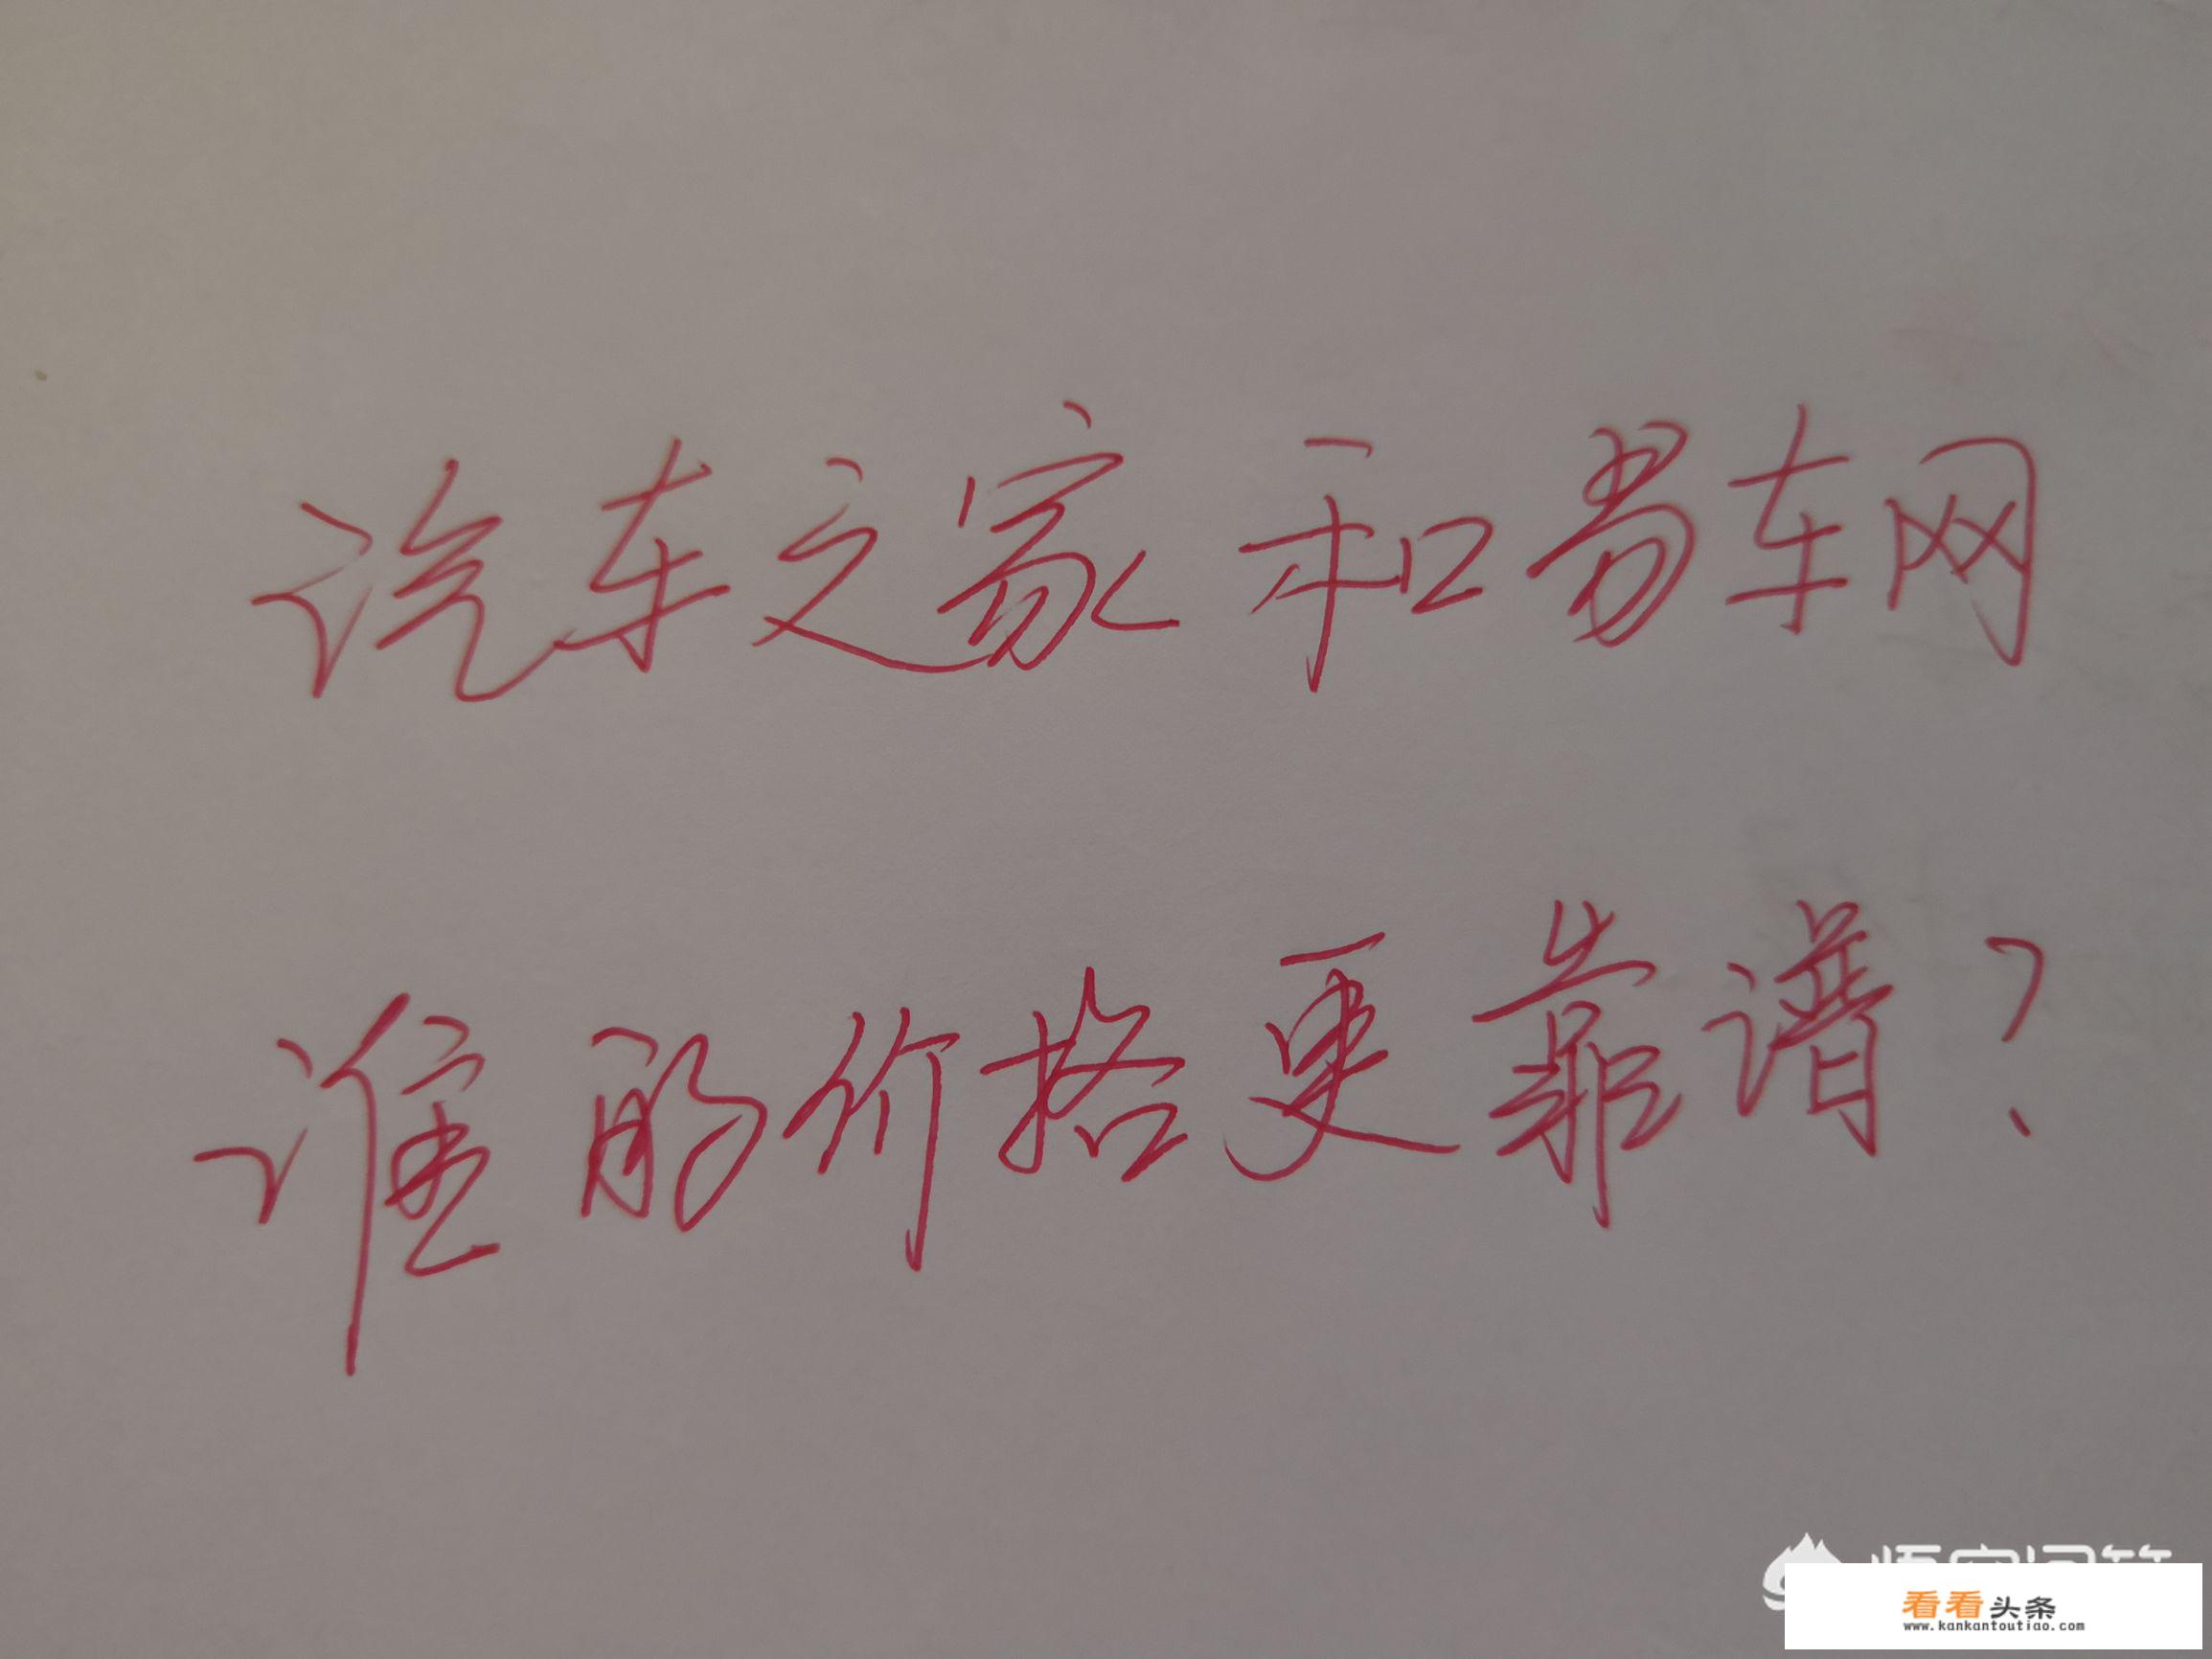 汽车之家和易车网
谁的价格更靠谱？
悟空问答
看看头条
www.kankantoutiao.com